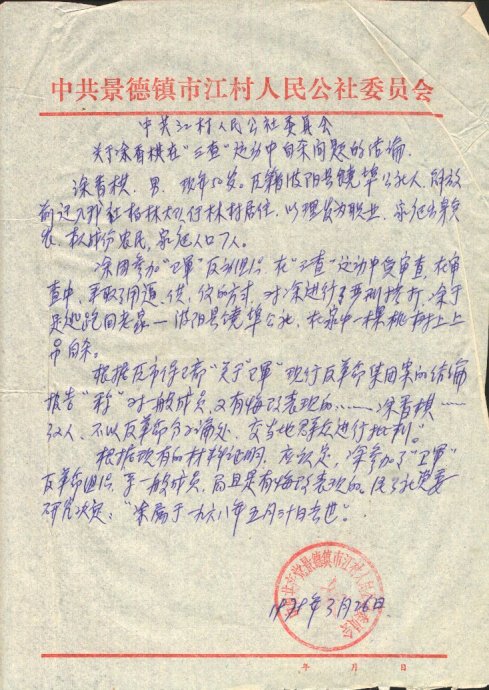 中共景德镇市江村人民公社委员会
中共江村人民公社委员会
关于涂香棋在“三查”运动中自杀问题的结论
涂香棋、男、现年50岁。原籍波阳县饶埠公社人、解放
前迁入我红柏林大队付林村居住、以理发为职业、家庭出身贫
农、本人成份农民、家庭人口7人。
涂因参加“卫军”反动组织、在“三查”运动中受审查、在审
查中、采取了用逼、供、信的方式、对涂进行了严刑拷打、涂于
是逃跑回老家—波阳县饶埠公社、在家中一棵桃树上上
吊自杀。
根据原市保卫部“关于“卫军”现行反革命集团案的结论
报告”称“对一般成员、又有悔改表现的……涂香棋……
32人、不以反革命分子论处、交当地群众进行批判。”
根据现有的材料证明、应认定、涂参加了“卫军”
反革命组织、系一般成员、而且是有悔改表现的。经公社党委
研究决定：“涂属于一九六八年五月 日去世”。
1978年3月26日
年 月 日